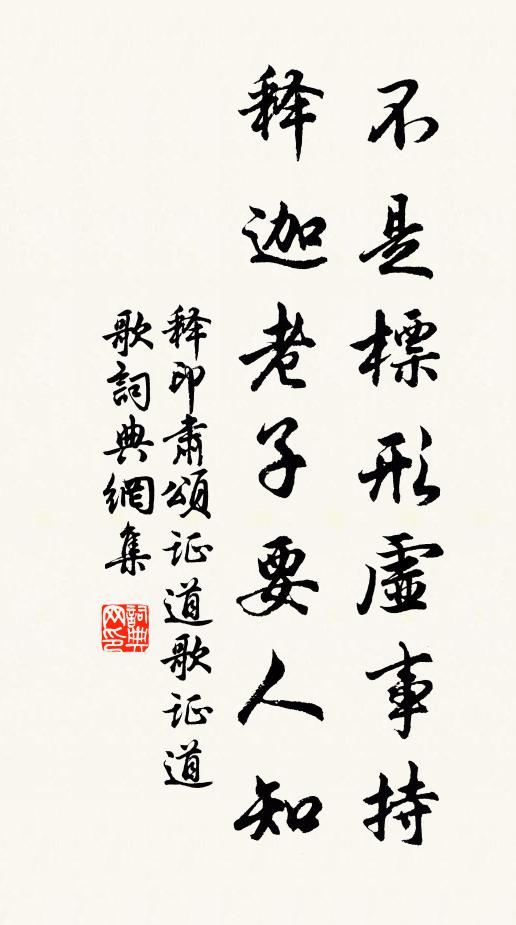 不是標形虛事持
释迦老子要人知
释印肃頌证道歌证道
歌詞典網集
詞典网印